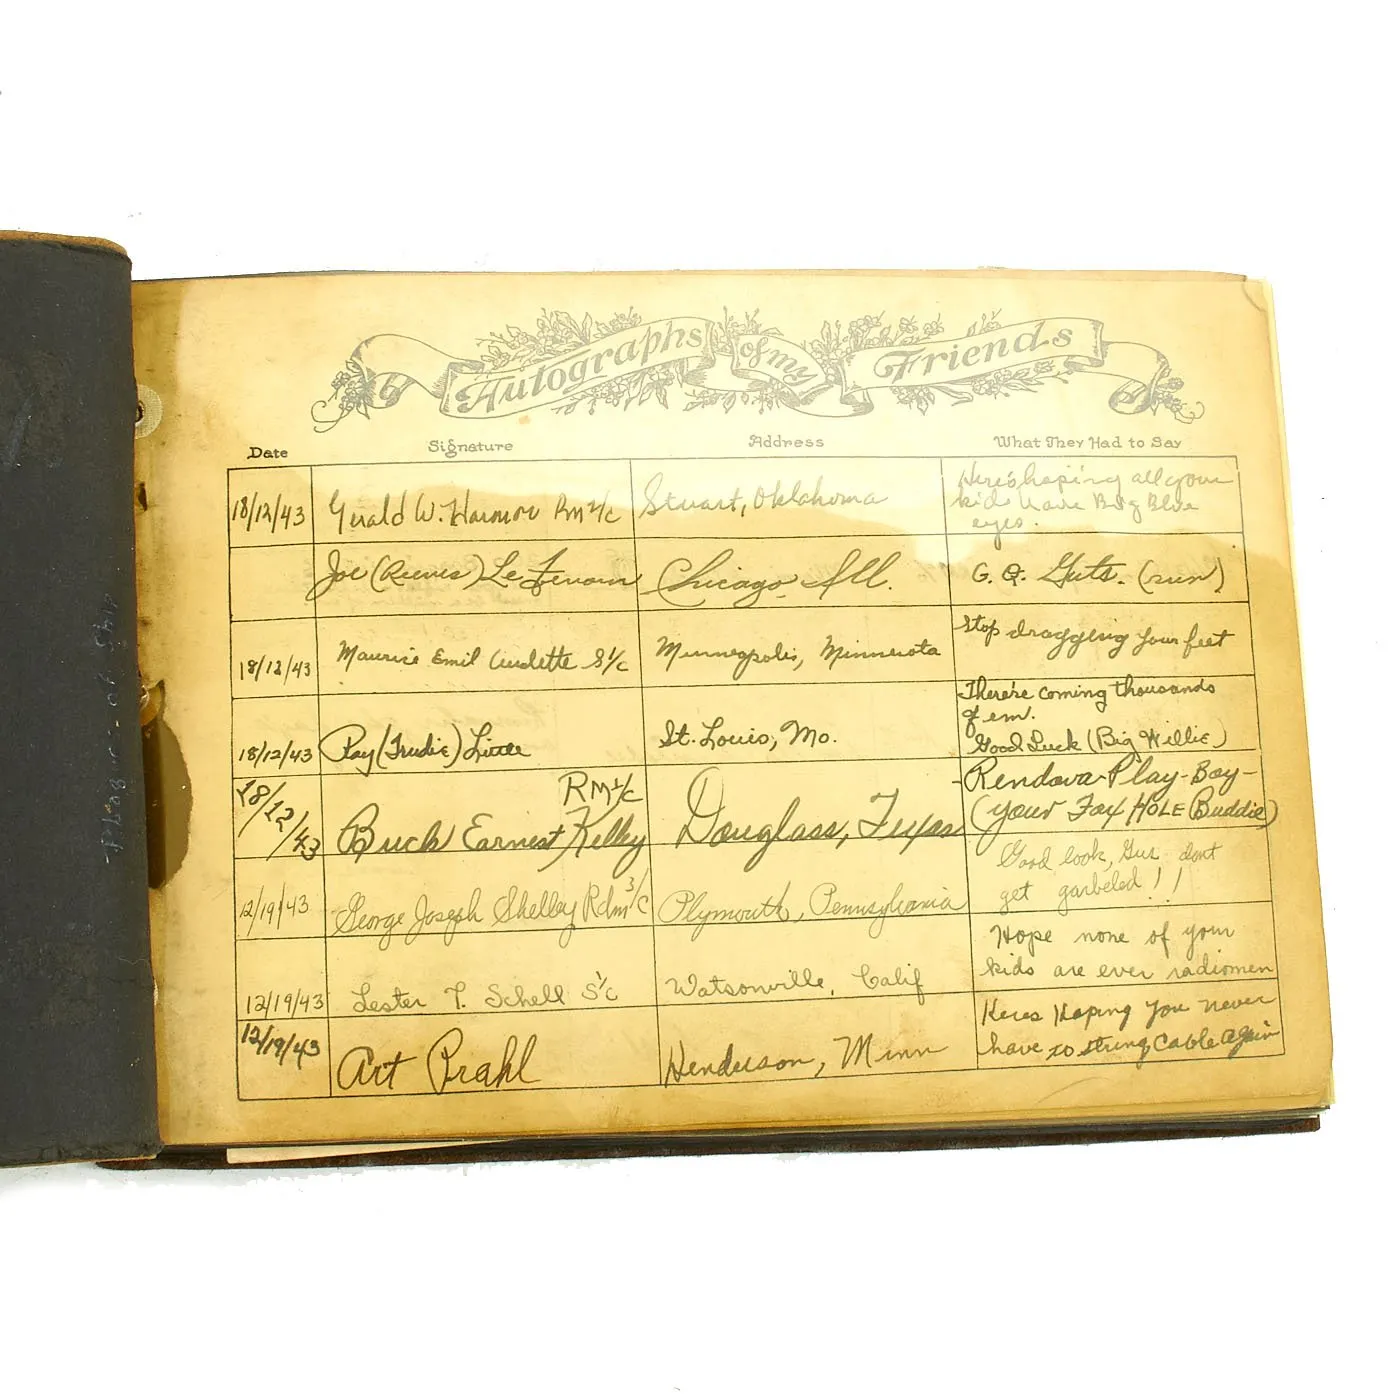 Autographs of my Friends
Date Signature Address What They Had to Say
18/12/43 Gerald W. Harmon Rm 2/c Stuart, Oklahoma Here's hoping all your
kid have Big Blue
eyes.
Joe (Reeves) Chicago Ill. G. Q. Guts. (run)
18/12/43 Maurice Emil Audette S 1/c Minneapolis, Minnesota Stop dragging your feet
There're coming thousands
of em.
18/12/43 Ray (Trudie) Little St. Louis, Mo. Good Luck (Big Willie)
RM 1/c Rendova-Play-Boy-
18/12/43 Buck Earnest Kelley Douglass, Texas (your Fox HOLE Buddie)
Good look, Gus dont
12/19/43 George Joseph Shelley Rdm 3/c Plymouth, Pennsylvania get garbeled!!
Hope none of your
12/19/43 Lester T. Schell S 1/c Watsonville, Calif kids are ever radiomen
12/19/43 Art Prahl Henderson, Minn Heres Hoping You never
have to string cable again